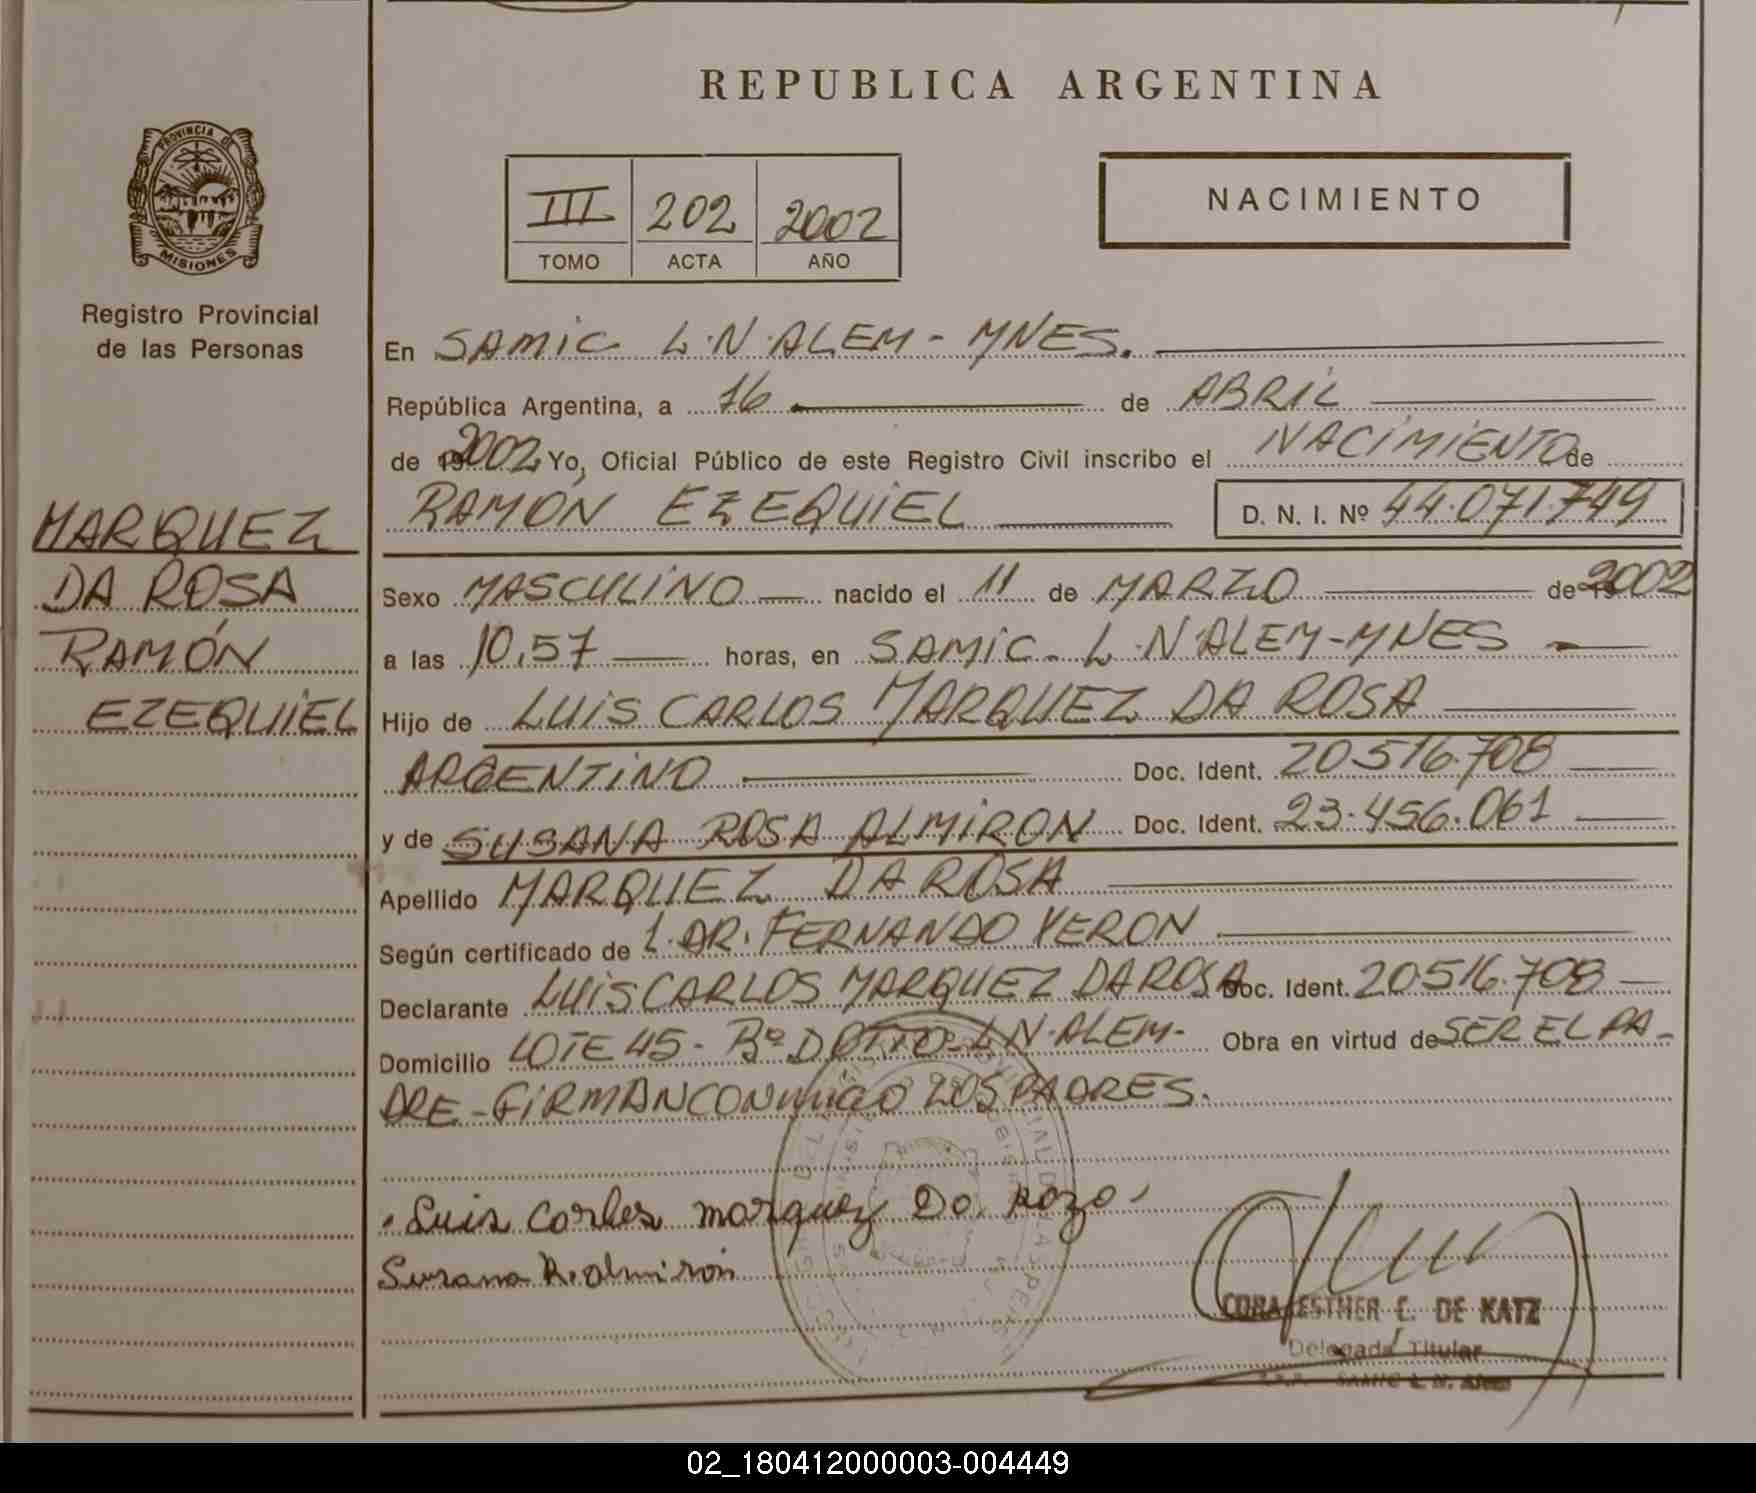 REPUBLICA ARGENTINA
PROVINCIA DE
MISIONES
Registro Provincial
de las Personas
III 202 2002
TOMO ACTA AÑO
NACIMIENTO
En SAMIC L.N.ALEM - MNES.
República Argentina, a 16 de ABRIL
de 2002 Yo, Oficial Público de este Registro Civil inscribo el NACIMIENTO de
RAMÓN EZEQUIEL D. N. I. Nº 44.071.749
MARQUEZ
DA ROSA
RAMÓN
EZEQUIEL
Sexo MASCULINO nacido el 11 de MARZO de 2002
a las 10,57 horas, en SAMIC - L.N.ALEM-MNES
Hijo de LUIS CARLOS MARQUEZ DA ROSA
ARGENTINO Doc. Ident. 20.516.708
y de SUSANA ROSA ALMIRON Doc. Ident. 23.456.061
Apellido MARQUEZ DA ROSA
Según certificado de DR. FERNANDO VERON
Declarante LUIS CARLOS MARQUEZ DA ROSA Doc. Ident. 20516.708
Domicilio LOTE 45 - Bº DOTTO - L N.ALEM- Obra en virtud de SER EL PA-
DRE - FIRMAN CONMIGO LOS PADRES.
Luis Carlos Marquez Da Roza
Susana R. Almirón
CORA ESTHER C. DE KATZ
Delegada Titular
SAMIC L. N. Alem
02_180412000003-004449